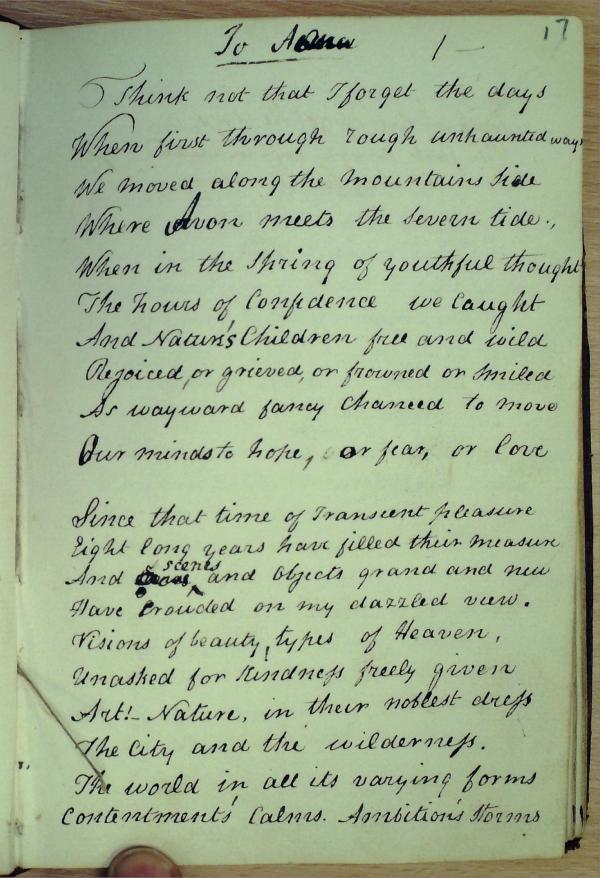 17
To Anna 1 —
Think not that I forget the days
When first through rough unhaunted ways
We moved along the mountains side
Where Avon meets the Severn tide.,
When in the Spring of youthful thought
The hours of Confidence we Caught
And Nature's Children free and wild
Rejoiced, or grieved, or frowned or Smiled
As wayward fancy Chanced to move
Our minds to hope, or fear, or love
Since that time of Transient pleasure
Eight long years have filled their measure
And scenes and Objects grand and new
Have Crouded on my dazzled view.
Visions of beauty, types of Heaven,
Unasked for Kindness freely given
Art!– Nature, in their noblest dress
The City and the wilderness.
The world in all its varying forms
Contentment's Calms. Ambition's Storms